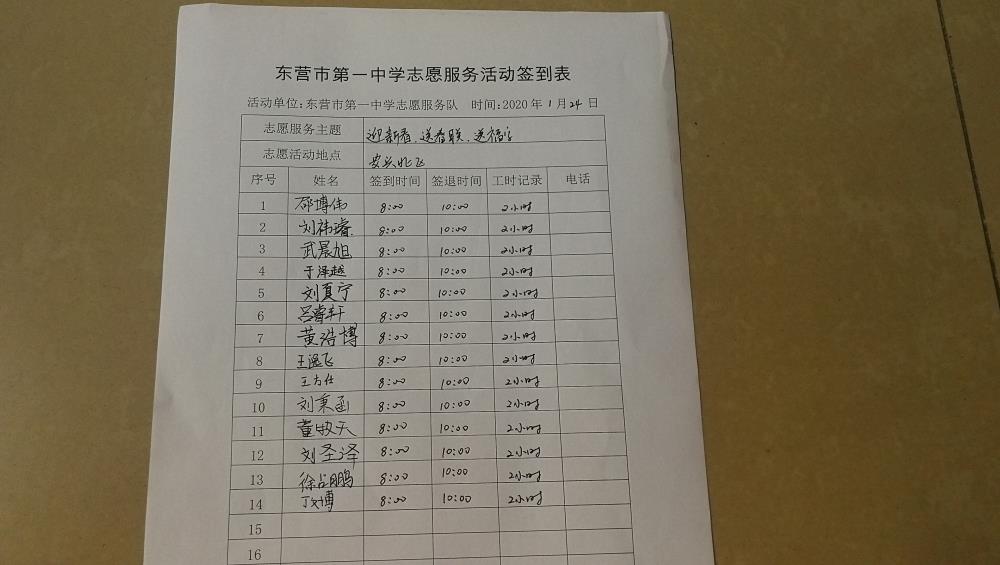 东营市第一中学志愿服务活动签到表
活动单位:东营市第一中学志愿服务队 时间:2020年1月24日
志愿服务主题 迎新春、送春联、送福字
志愿活动地点
序号 姓名 签到时间 签退时间 工时记录 电话
1 邵博伟 8:00 10:00 2小时
2 刘祎睿 8:00 10:00 2小时
3 武晨旭 8:00 10:00 2小时
4 于泽越 8:00 10:00 2小时
5 刘夏宁 8:00 10:00 2小时
6 吕睿轩 8:00 10:00 2小时
7 黄浩博 8:00 10:00 2小时
8 王逸飞 8:00 10:00 2小时
9 王方仕 8:00 10:00 2小时
10 刘秉函 8:00 10:00 2小时
11 董牧天 8:00 10:00 2小时
12 刘圣泽 8:00 10:00 2小时
13 徐占鹏 8:00 10:00 2小时
14 丁文博 8:00 10:00 2小时
15
16